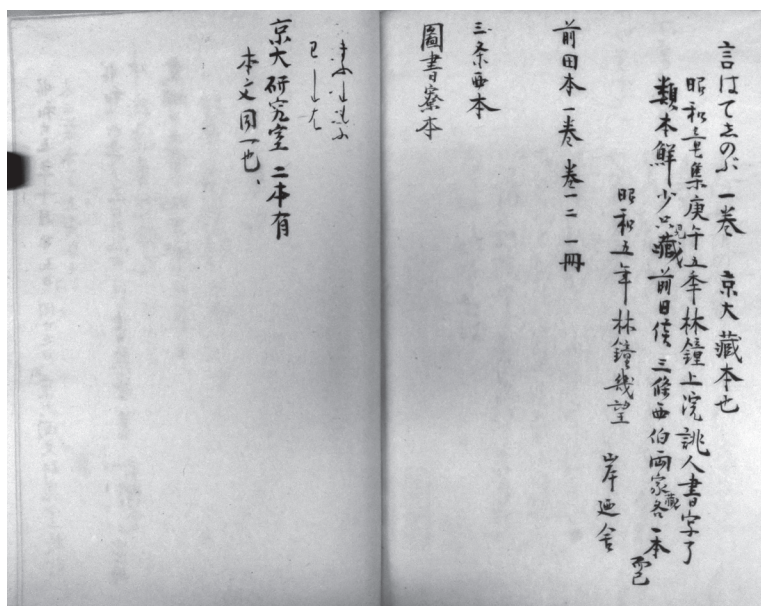 言はてしのぶ 一巻 京大藏本也
昭和 集庚午五季林鐘上浣誂人書字了
類本鮮少 藏前田侯三條西伯両家各一本
而已
昭和五年林鐘幾望 岸廼舎
前田本一巻 巻一二 一冊
三条西本
圖書寮本
京大研究室 二本有
本文同一也、